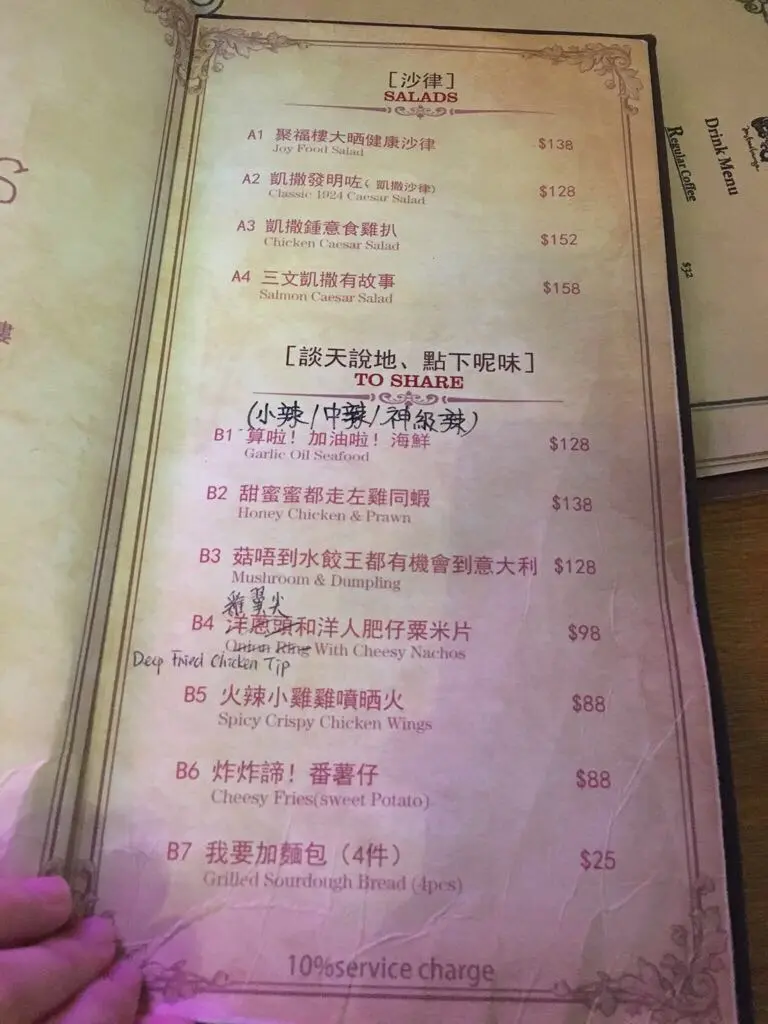 [沙律]
SALADS
A1 聚福樓大晒健康沙律 $138
Joy Food Salad
A2 凱撒發明咗(凱撒沙律) $128
Classic 1924 Caesar Salad
A3 凱撒鍾意食雞扒 $152
Chicken Caesar Salad
A4 三文凱撒有故事 $158
Salmon Caesar Salad
[談天說地、點下呢味]
TO SHARE
(小辣/中辣/神級辣)
B1 算啦！加油啦！海鮮 $128
Garlic Oil Seafood
B2 甜蜜蜜都走左雞同蝦 $138
Honey Chicken & Prawn
B3 菇唔到水餃王都有機會到意大利 $128
Mushroom & Dumpling
雞翼尖
B4 洋蔥頭和洋人肥仔粟米片 $98
Onion Ring With Cheesy Nachos
Deep Fried Chicken Tip
B5 火辣小雞雞噴晒火 $88
Spicy Crispy Chicken Wings
B6 炸炸諦！番薯仔 $88
Cheesy Fries(sweet Potato)
B7 我要加麵包（4件） $25
Grilled Sourdough Bread (4pcs)
10%service charge
Drink Menu
Regular Coffee $32
樓